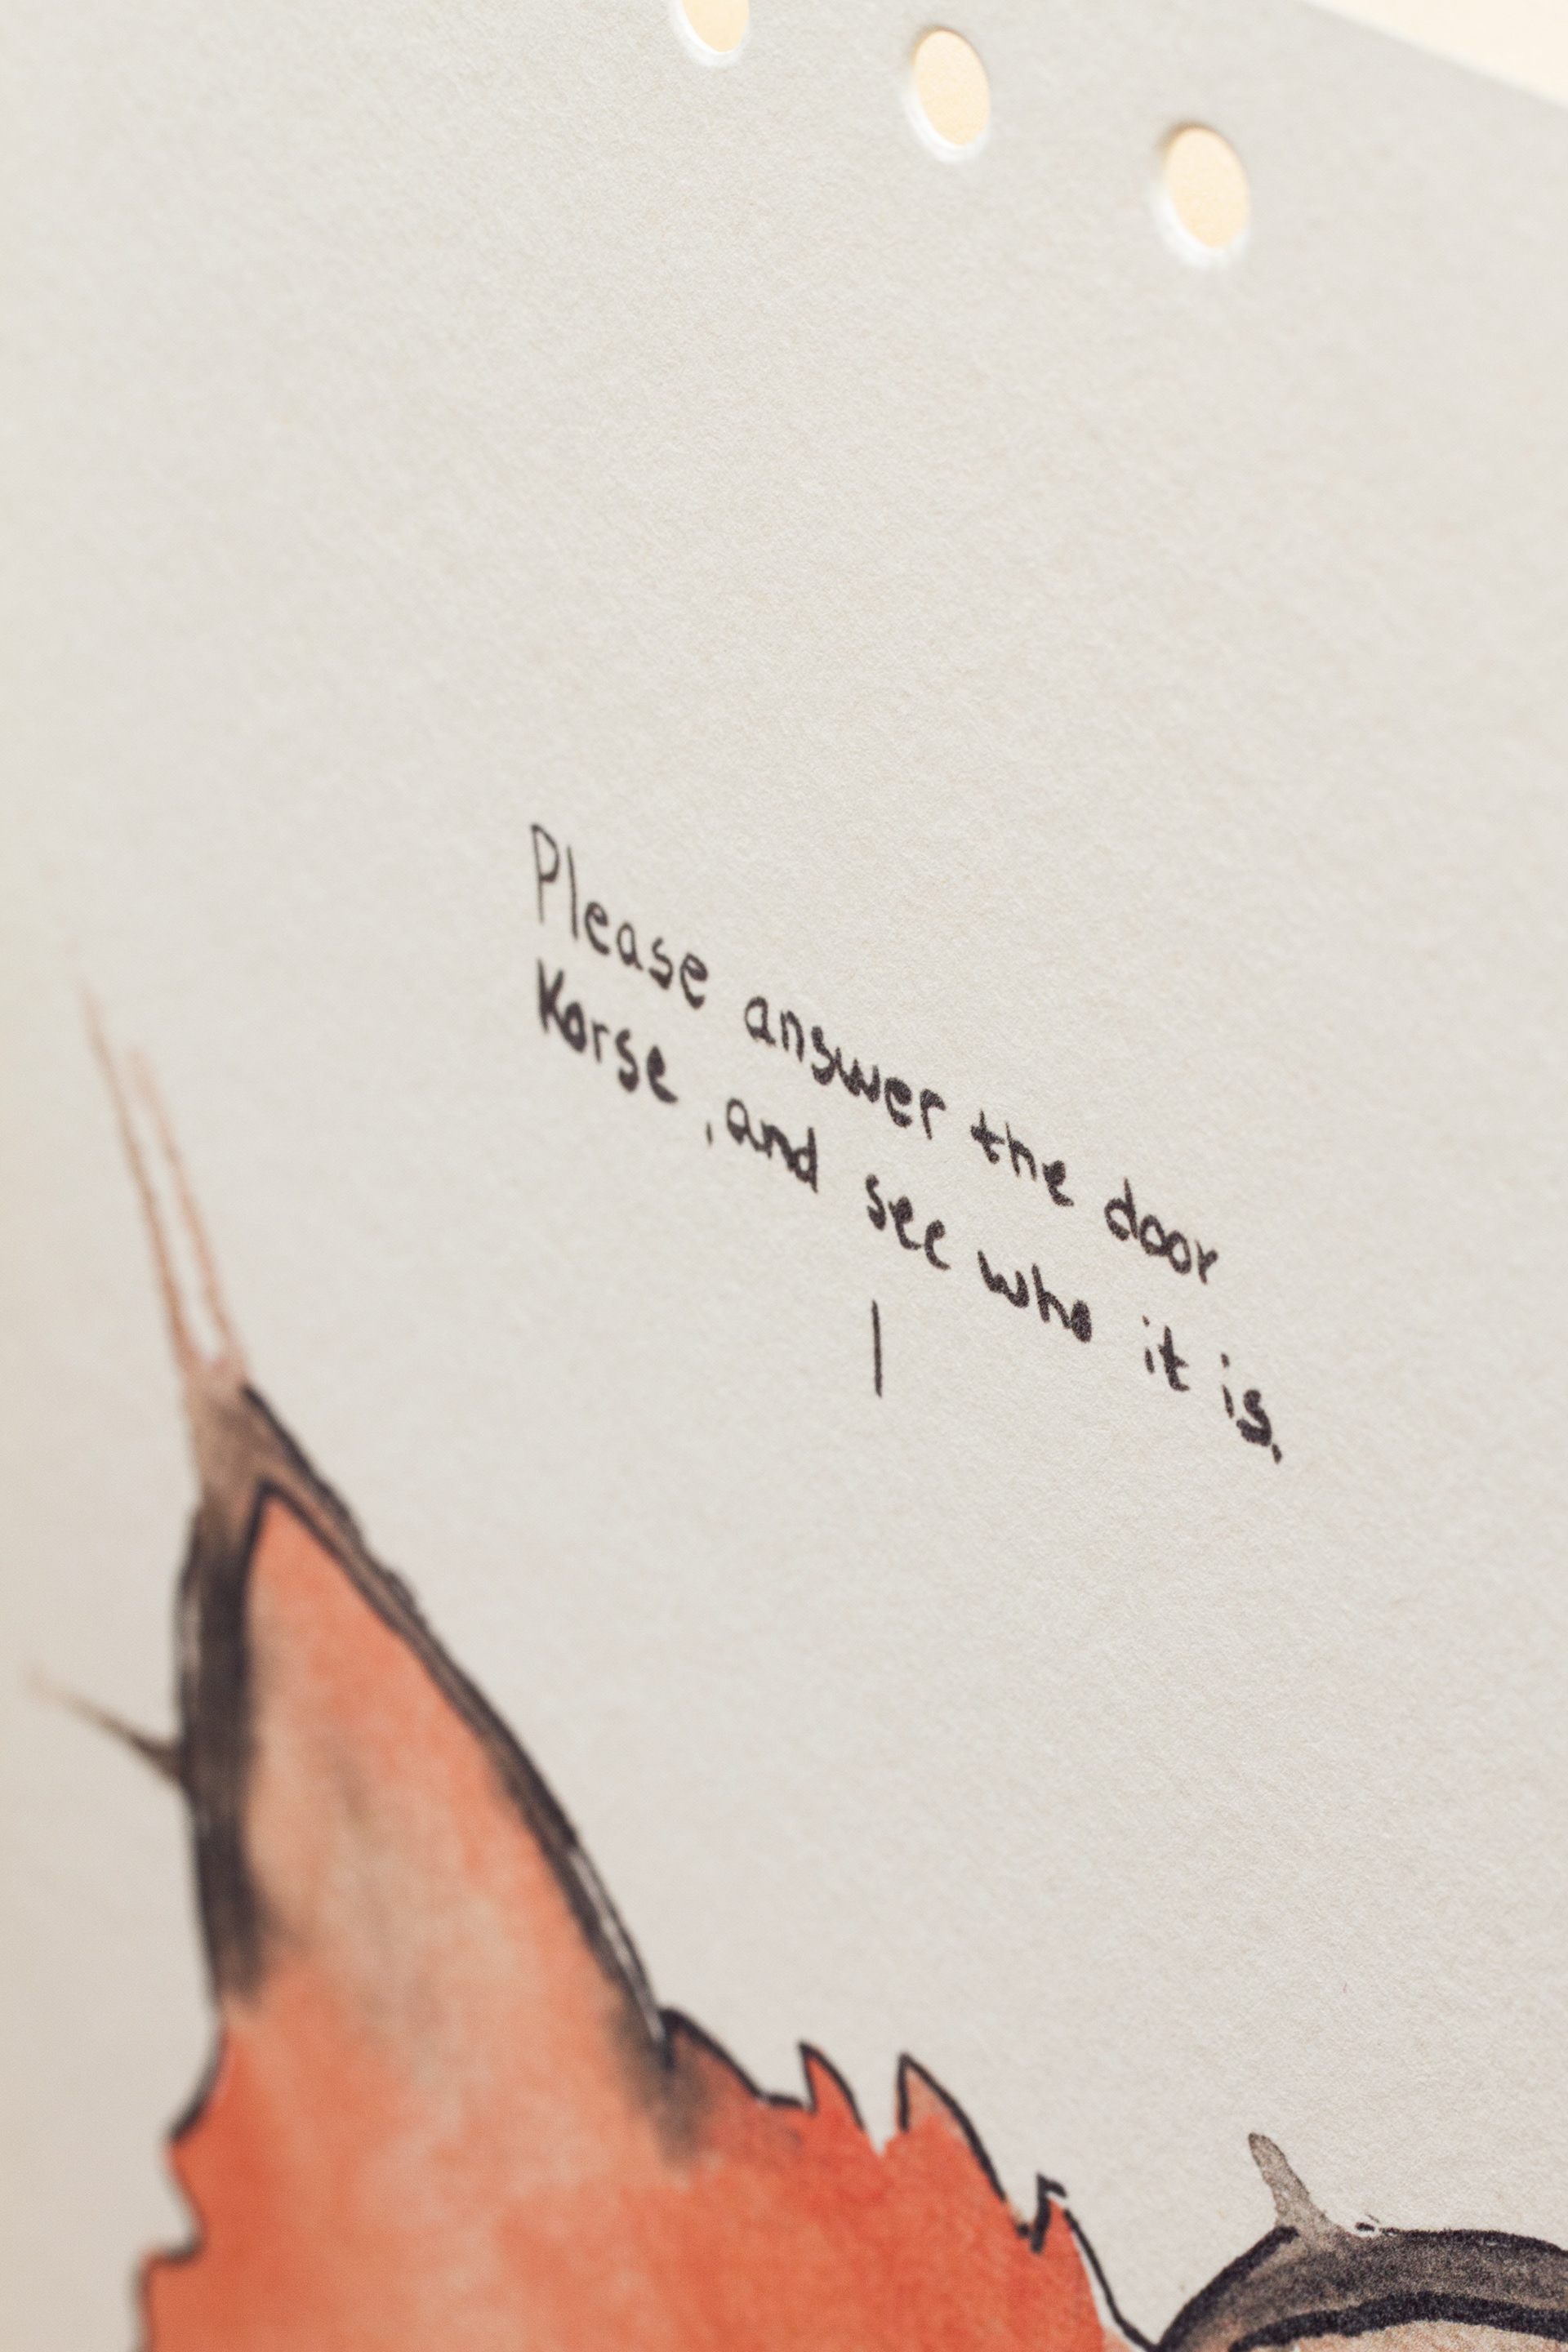 Please answer the door
Korse, and see who it is.